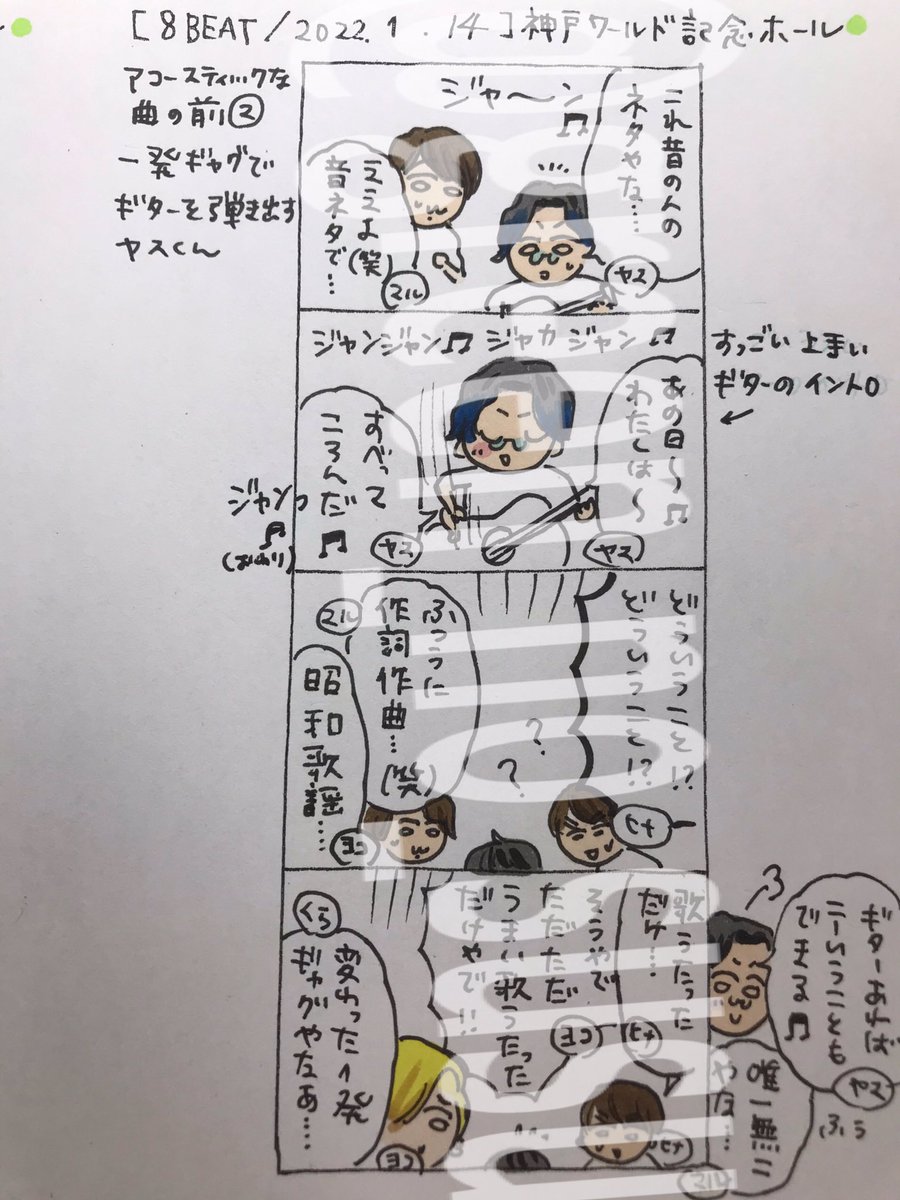 [8BEAT/2022.1.14]神戸ワールド記念ホール
アコースティックな
曲の前②
一発ギャグで
ギターを弾き出す
ヤスくん
ジャ〜〜ン♫
これ昔の人の
ネタやな…
ヤス
ええよ(笑)
音ネタで…
マル
すっごい上手い
ギターのイントロ
ジャンジャン♫ジャカジャン♫
あの日〜♪
わたしは〜
ヤス
すべって
ころんだ♫
ヤス
ジャンっ
♫
(おわり)
どういうこと!?
どういうこと!?
ヒナ
?
?
ふつうに
作詞作曲…(笑)
マル
昭和歌謡……
ヨコ
ギターあれば
こーいうことも
できる♫
ヤス
ふぅ
唯一無二
やな…
マル
歌うたった
だけ…
ヒナ
そうやで
ただただ
うまい歌うたった
だけやで!!
ヨコ
ヒナ
くら
変わった1発
ギャグやなぁ……
ヨコ